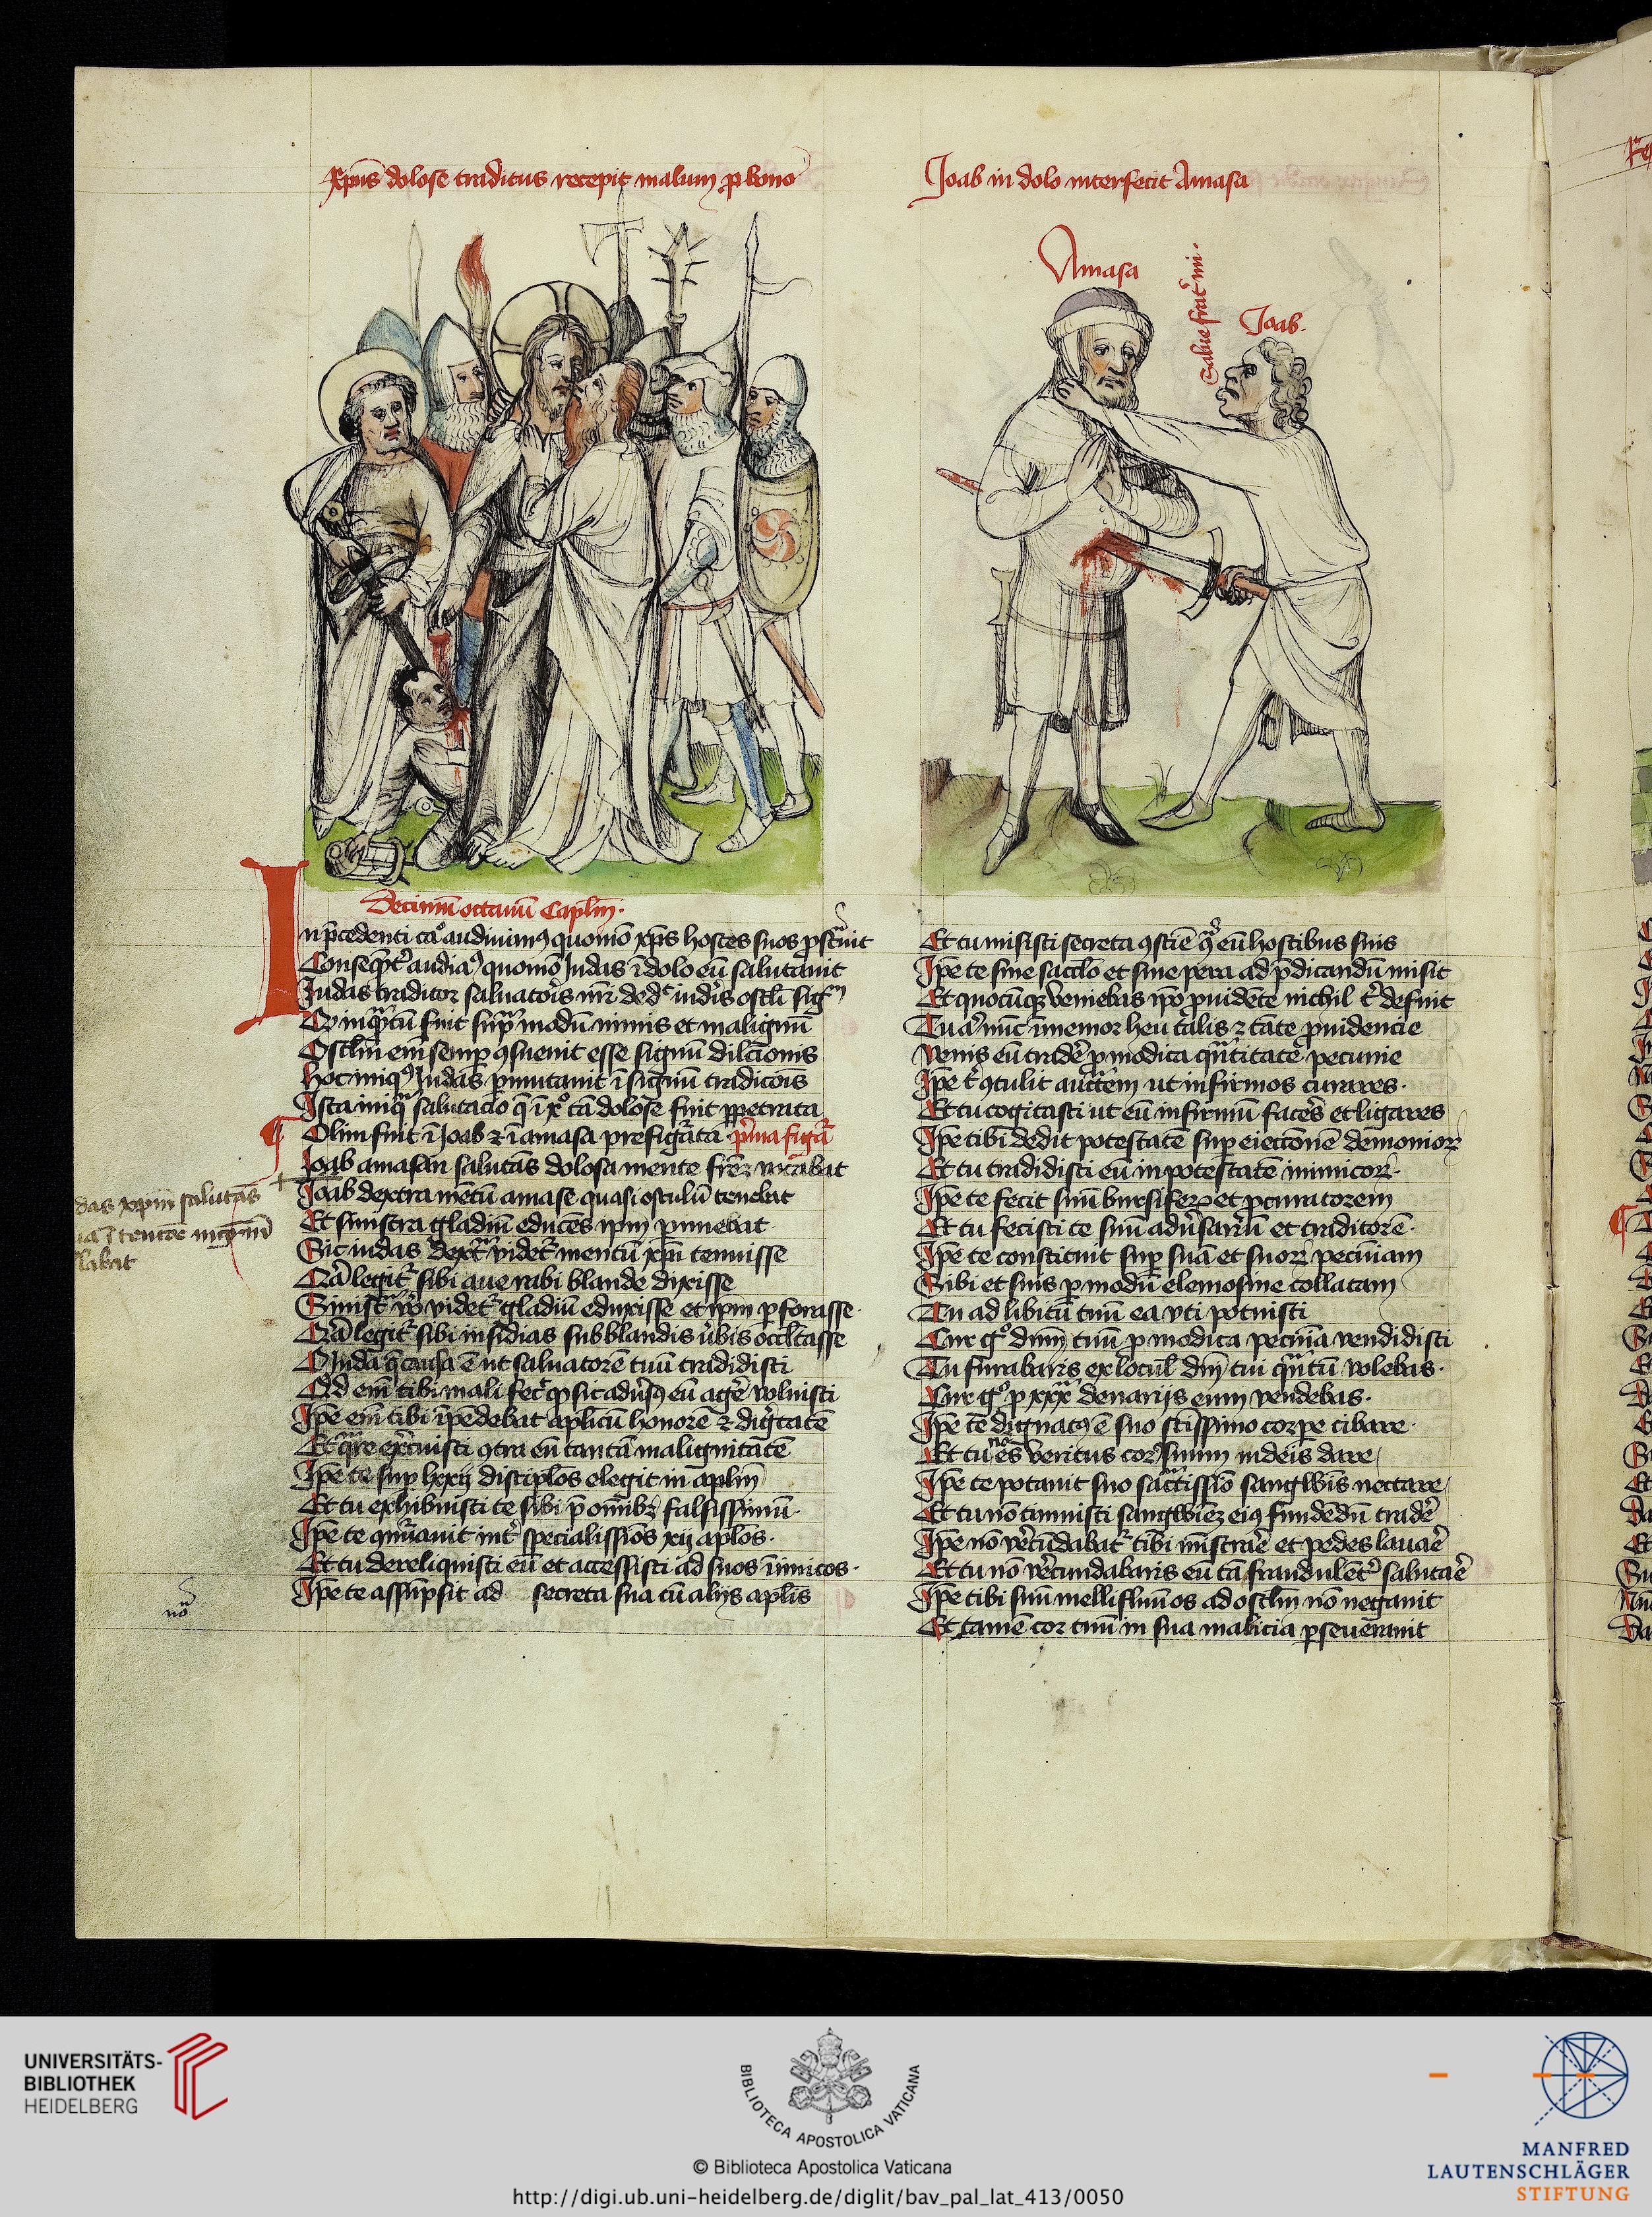 Xp̄us dolose traditus recepit malum ꝓ bono
Joab in dolo interfecit Amasa
Amasa
Salue frat̾ mi.
Joab.
Decimū octauū Capl̄m.
In p̄cedenti ca° audiuimꝰ quomō xp̄s hostes suos ꝓstᵃuit
Conseq̄nt̾ audiaꝰ quomō Judas ī dolo eū salutauit
Judas traditor saluatoris nr̄i ded̾ iudeis oscl̄i sigᵐ
Qd̄ inqᵃtū fuit supᵃ modū nimis et malignū
Oscl̄m em̄ semꝑ ꝯsueuit esse signū dilc̄ionis
Hoc iniqꝰ Judas ꝑmutauit ī signū tradicōis
Ista iniqᵃ salutacio q̄ ī xp̄o tā dolose fuit ꝑpetrata
Olim fuit ī Joab ⁊ ī amasa prefigᵃata pͥma figᵃ
Joab amasan salutās dolosa mente frēm vocabat
Joab dextra mētū amase quasi osculū tenebat
Et sinistra gladiū educēs ip̄m ꝑimebat
das xpm̄ salutās
labat
Sic iudas dextᵃ videt̾ mentū xp̄i tenuisse
Qᵃ legit̾ sibi aue rabi blande dixisse
Sinistᵃ v̾o videt̾ gladiū eduxisse et ip̄m ꝑforasse.
Qᵃ legit̾ sibi insidias sub blandis v̾bis occl̾tasse
O Juda q̄ causa ē ut saluatorē tuū tradidisti
Qd̄ em̄ tibi mali fec̾ ꝙ sic adu̾sꝰ eū age̾ voluisti
Ip̄e em̄ tibi īpēdebat ap̄licū honorē ⁊ dig̾tatē
Et qᵃre ex̾cuisti ꝯtra eū tantā malignitatē
Ip̄e te suꝑ lxxij discipl̄os elegit in ap̄lm̄
Et tu exhibuisti te sibi p̄ om̄ibꝫ falsissimū.
Ip̄e te ꝯnu̾auit int̾ specialissiōs xij ap̄los.
Et tu dereliquisti eū et accessisti ad suos īimicos.
Ip̄e te assūpsit ad secreta sua cū alijs ap̄lis
nō
Et tu misisti secreta ꝯsciē qᵒ eū hostibus suis
Ip̄e te sine saccl̄o et sine pera ad p̄dicandū misit
Et quocūqꝫ veniebas ip̄o ꝓuidēte nichil t̾ defuit
Tu aꝰ nūc īmemor heu talis ⁊ tāte ꝓuidencie
Venis eū trade̾ ꝓ modica qᵃntitate pecunie
Ip̄e t̾ ꝯtulit auctᵗem ut infirmos curares.
Et tu cogitasti ut eū infirmū faceres et ligares
Ip̄e tibi dedit potestatē suꝑ eiectionē demonioꝝ
Et tu tradidisti eū in potestatē inimicoꝝ.
Ip̄e te fecit suū bursiferū et ꝓcuratorem
Et tu fecisti te suū adu̾sariū et traditorē.
Ip̄e te constituit suꝑ suā et suoꝝ pecuniam
Sibi et suis ꝑ modū elemosine collatam
Tu ad libitū tuū ea vti potuisti
Cur gᵒ dn̄m tuū ꝓ modica pecunia vendidisti
Tu furabaris ex locul̾ dn̄i tui qᵃntū volebas.
Cur gᵒ ꝓ xxx denarijs eum vendebas.
Ip̄e te dignatꝰ ē suo sc̄issimo corꝑe cibare.
Et tu nō es veritus corpꝰ suum iudeis dare
Ip̄e te potauit suo sacᵃtissīo sangwīs nectare
Et tu nō timuisti sangwinē eiꝰ fundēdū trade̾
Ip̄e nō ve̾cūdabat̾ tibi mīstrare̾ et pedes lauare̾
Et tu nō ve̾cundabaris eū tā fraudulēt̾ salutare̾
Ip̄e tibi suū mellifluū os ad oscl̄m nō negauit
Et tamē cor tuū in sua malicia ꝑseuerauit
UNIVERSITÄTS-
BIBLIOTHEK
HEIDELBERG
BIBLIOTECA APOSTOLICA VATICANA
© Biblioteca Apostolica Vaticana
http://digi.ub.uni-heidelberg.de/diglit/bav_pal_lat_413/0050
MANFRED
LAUTENSCHLÄGER
STIFTUNG